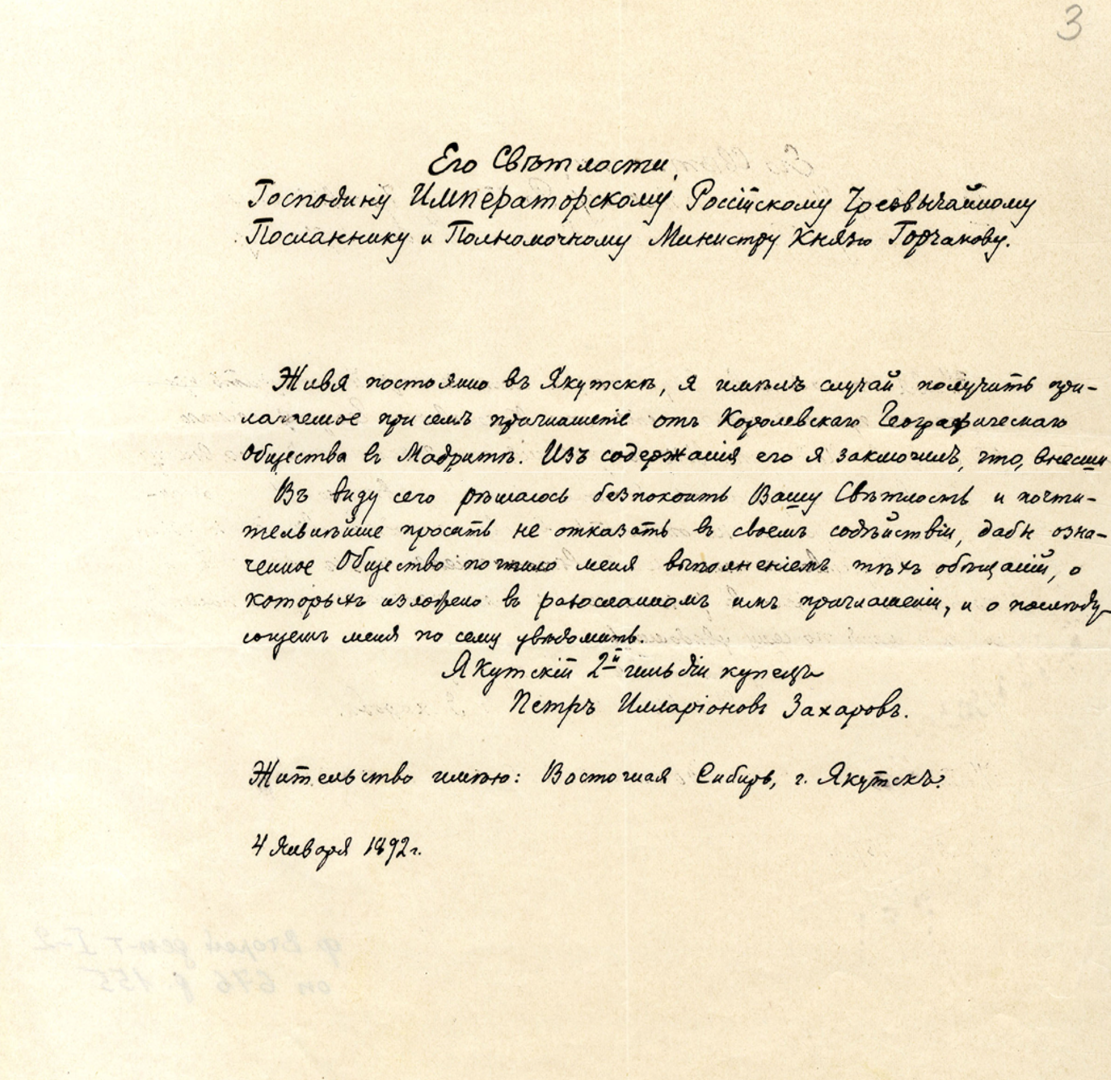 3
Его Свѣтлости,
Господину Императорскому Россійскому Чрезвычайному
Посланнику и Полномочному Министру Князю Горчакову.
Живя постоянно въ Якутскѣ, я имѣлъ случай получить при-
лагаемое при семъ приглашеніе отъ Королевскаго Географическаго
Общества въ Мадритѣ. Изъ содержанія его я заключилъ, что, внесши
Въ виду сего рѣшаюсь безпокоить Вашу Свѣтлость и почти-
тельнѣйше просить не отказать въ своемъ содѣйствіи, дабы озна-
ченное Общество почтило меня выполненіемъ тѣхъ обѣщаній, о
которыхъ изложено въ разосланномъ имъ приглашеніи, и о послѣду-
ющемъ меня по сему увѣдомить.
Якутскій 2й гильдіи купецъ
Петръ Илларіоновъ Захаровъ.
Жительство имѣю: Восточная Сибирь, г. Якутскъ.
4 Января 1892 г.